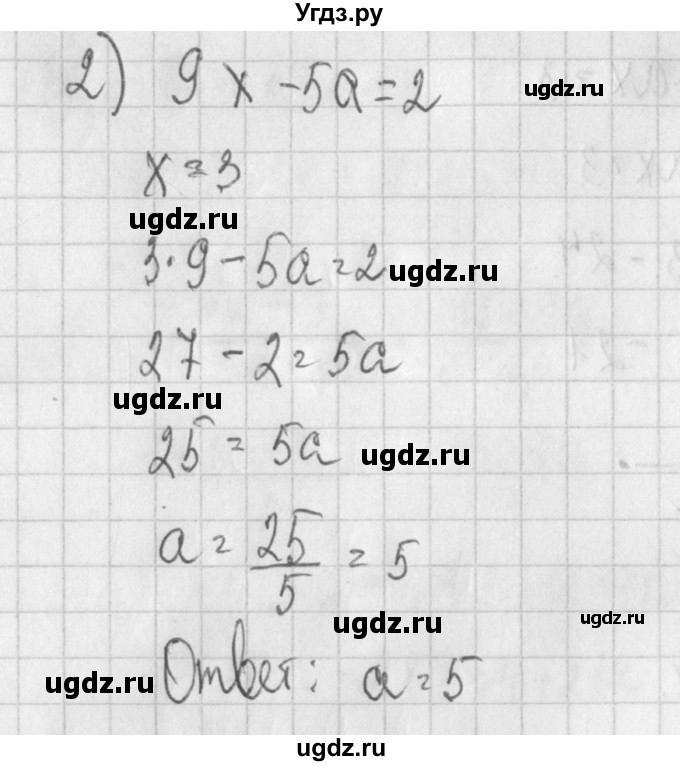 Угдз.ру
2) 9x - 5a = 2
ugdz.ru
x = 3
ugdz.ru
3·9 - 5a = 2
ugdz.ru
27 - 2 = 5a
ugdz.ru
25 = 5a
ugdz.ru
a = 25/5 = 5
ugdz.ru
ugdz.ru
Ответ: a = 5
ugdz.ru
ugdz.ru